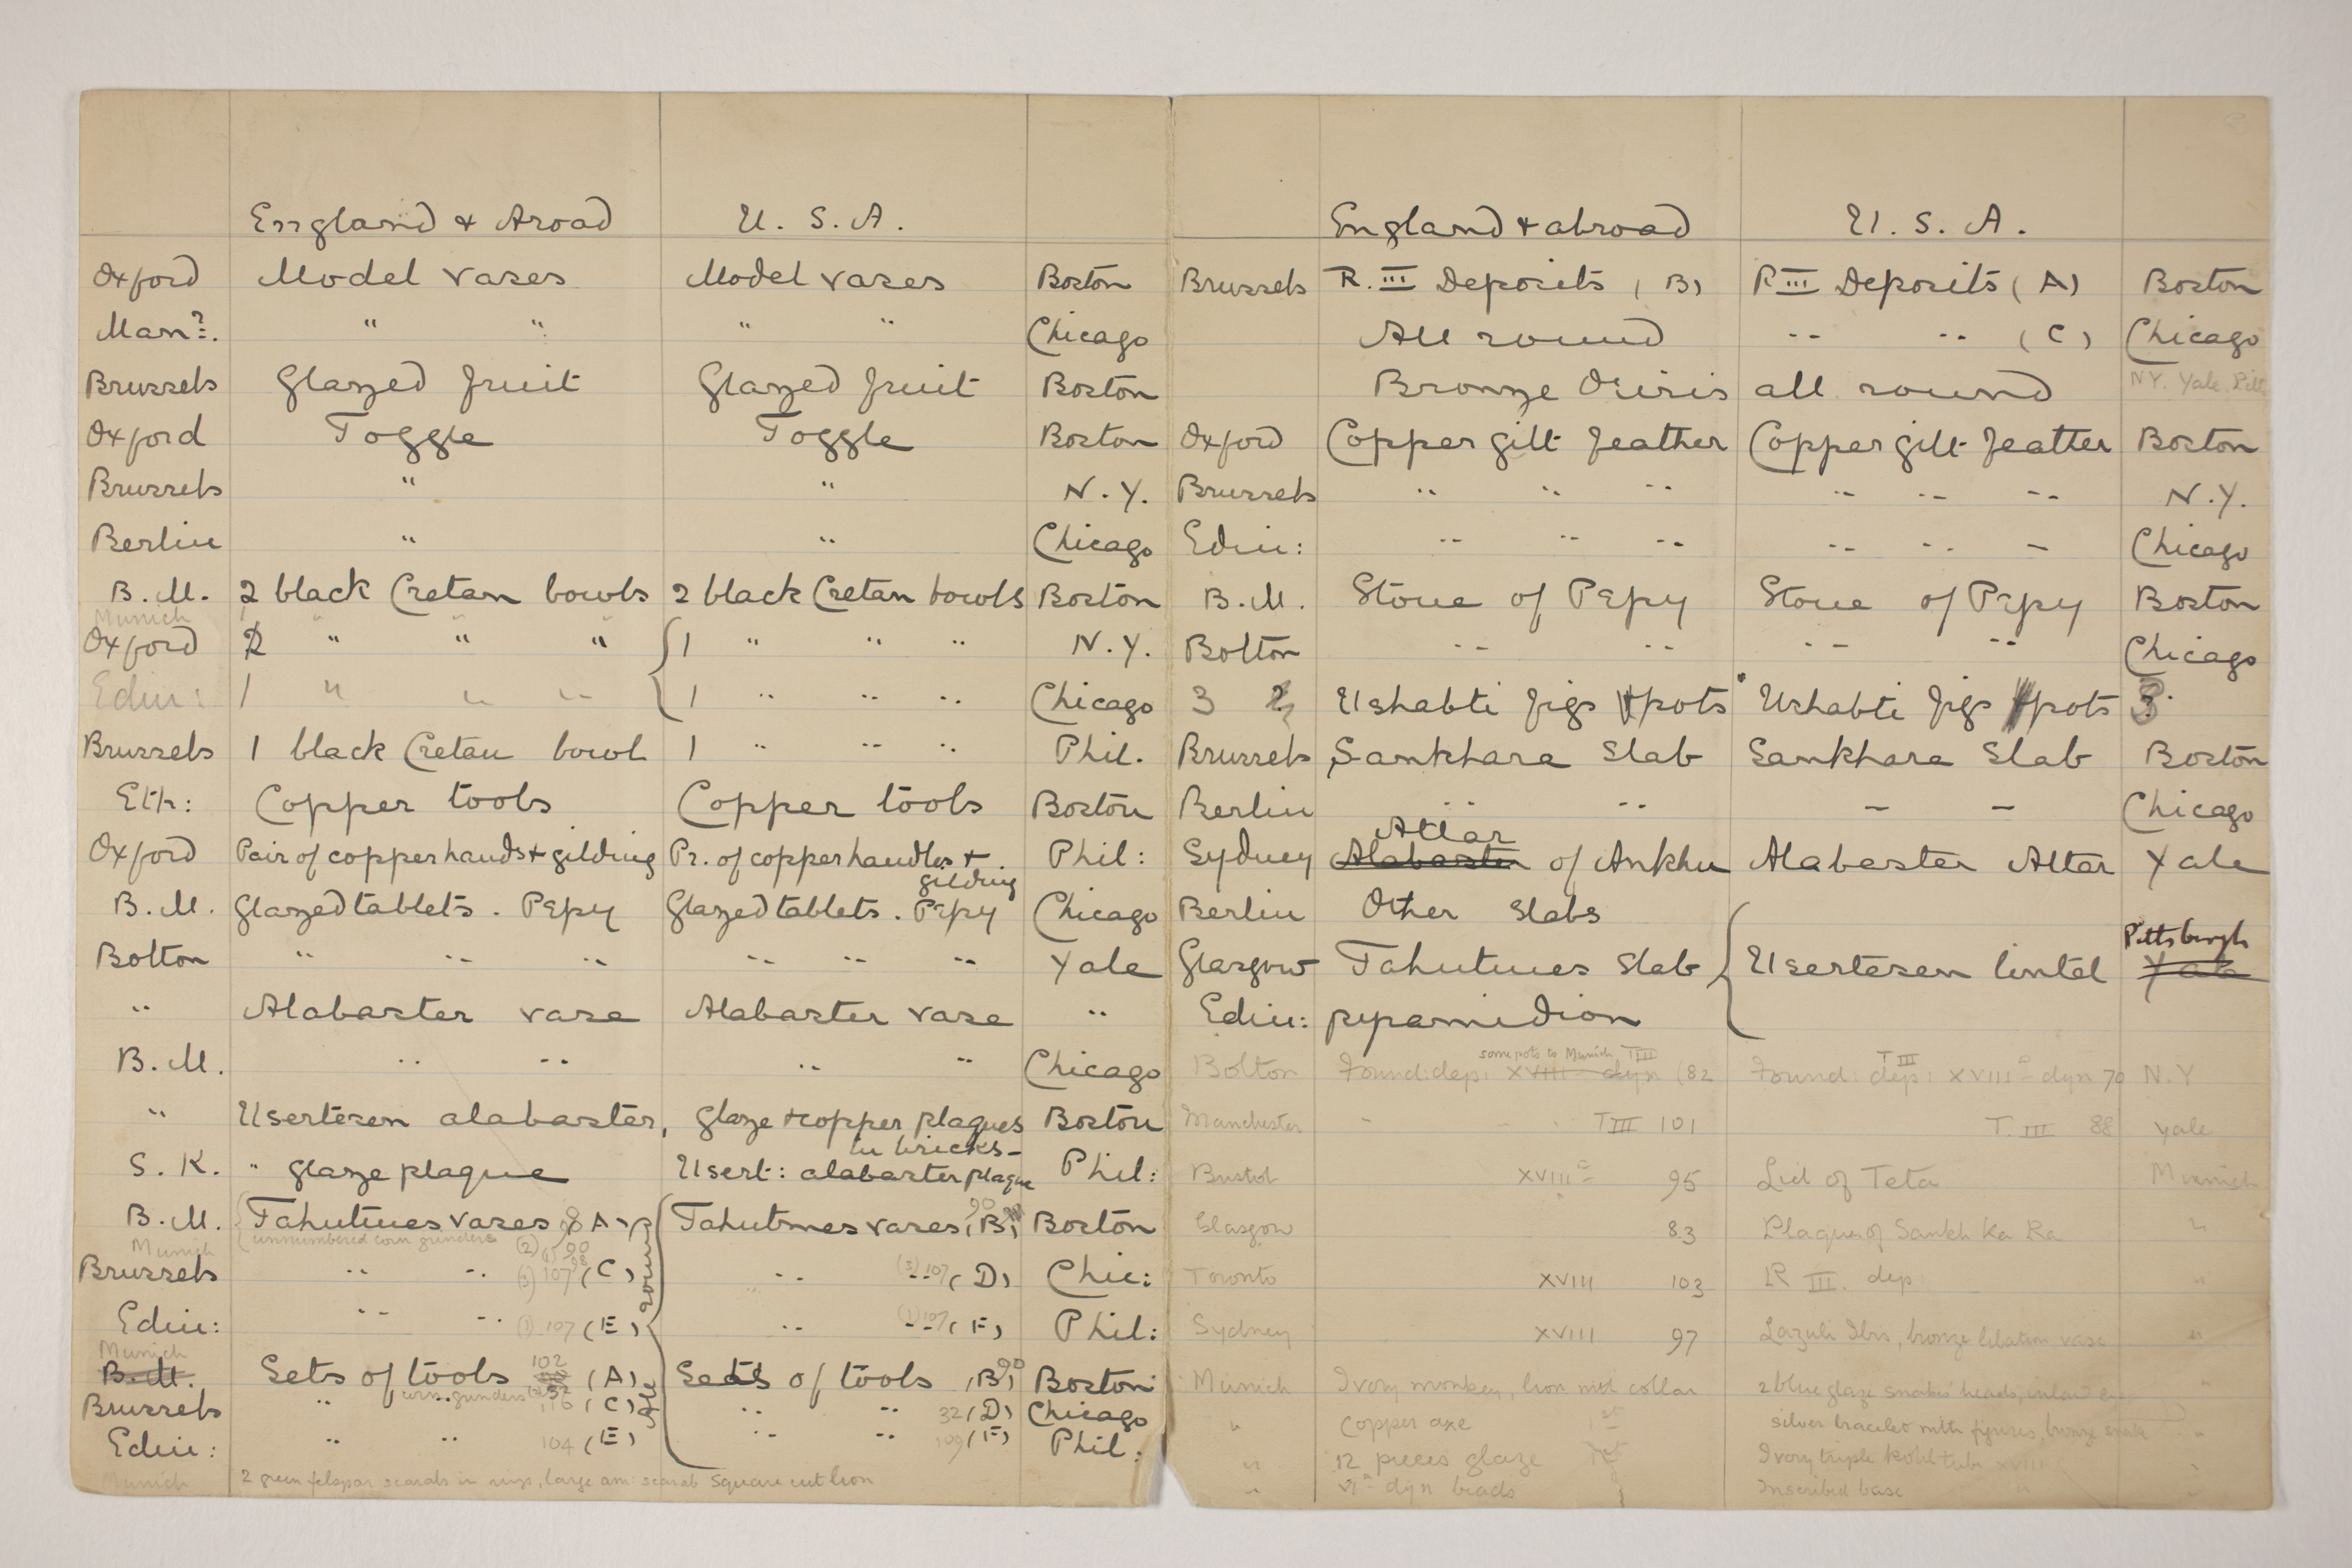 England & Aroad U. S. A.
Oxford Model vases Model vases Boston
Man?. " " " " Chicago
Brussels Glazed fruit Glazed fruit Boston
Oxford Toggle Toggle Boston
Brussels " " N. Y.
Berlin " " Chicago
B. M. 2 black Cretan bowls 2 black Cretan bowls Boston
Munich
Oxford 2 " " " 1 " " " N. Y.
Edin: 1 " " " 1 " " " Chicago
Brussels 1 black Cretan bowl 1 " " " Phil.
Eth: Copper tools Copper tools Boston
Oxford Pair of copper hands & gilding Pr. of copper handles + gilding Phil:
B. M. Glazed tablets. Pepy Glazed tablets. Pepy Chicago
Bolton " " " " " " Yale
" Alabaster vase Alabaster vase "
B. M. " " " " Chicago
" Usertesen alabaster, Glaze & copper plaques in bricks - Boston
S. K. " glaze plaque Usert: alabaster plaque Phil:
B. M. Tahutmes vases (A) Tahutmes vases 90 (B) Boston
Munich unnumbered corn grinders (2) 90
Brussels " " (3) 107 98 (C) " " (3) 107 (D) Chic:
Edin: " " (1) 107 (E) round " " (1) 107 (F) Phil:
Munich
B. M. Sets of tools 102 (A) Sets of tools 90 (B) Boston
corn grinders
Brussels " " (C) " " 32 (D) Chicago
Edin: " " 104 (E) " " 109 (F) Phil:
Munich 2 green felspar scarabs in rings, large am: scarab Square cut lion
England & abroad U. S. A.
Brussels R. III Deposits (B) R III Deposits (A) Boston
All round " " (C) Chicago
Bronze Osiris all round NY. Yale. Pitt
Oxford Copper gilt feather Copper gilt feather Boston
Brussels " " " " " " N. Y.
Edin: " " " " " " Chicago
B. M. Stone of Pepy Stone of Pepy Boston
Bolton " " " " Chicago
3 Ushabti figs + pots Ushabti figs + pots 3
Brussels Sankhara Slab Sankhara Slab Boston
Berlin " " " " Chicago
Altar
Sydney Alabaster of Ankhu Alabaster Altar Yale
Berlin Other slabs
Pittsburgh
Glasgow Tahutmes Slab Usertesen lintel Yale
Edin: pyramidion
some pots to Munich TIII TIII
Bolton Found: dep: XVIII dyn (82 Found: dep: XVIII dyn 70 N.Y
Manchester " " TIII 101 T. III 88 Yale
Bristol XVIII 95 Lid of Teta Munich
Glasgow 83 Plaque of Sankh Ka Ra "
Toronto XVIII 103 R III. dep "
Sydney XVIII 97 Lazuli Ibis, bronze libation vase "
Munich Ivory monkey, lion with collar 2 blue glaze snakes' heads, "
" Copper axe silver bracelet with figures, bronze snake "
" 12 pieces glaze Ivory triple Kohl tube XVIII "
" dyn beads Inscribed base "